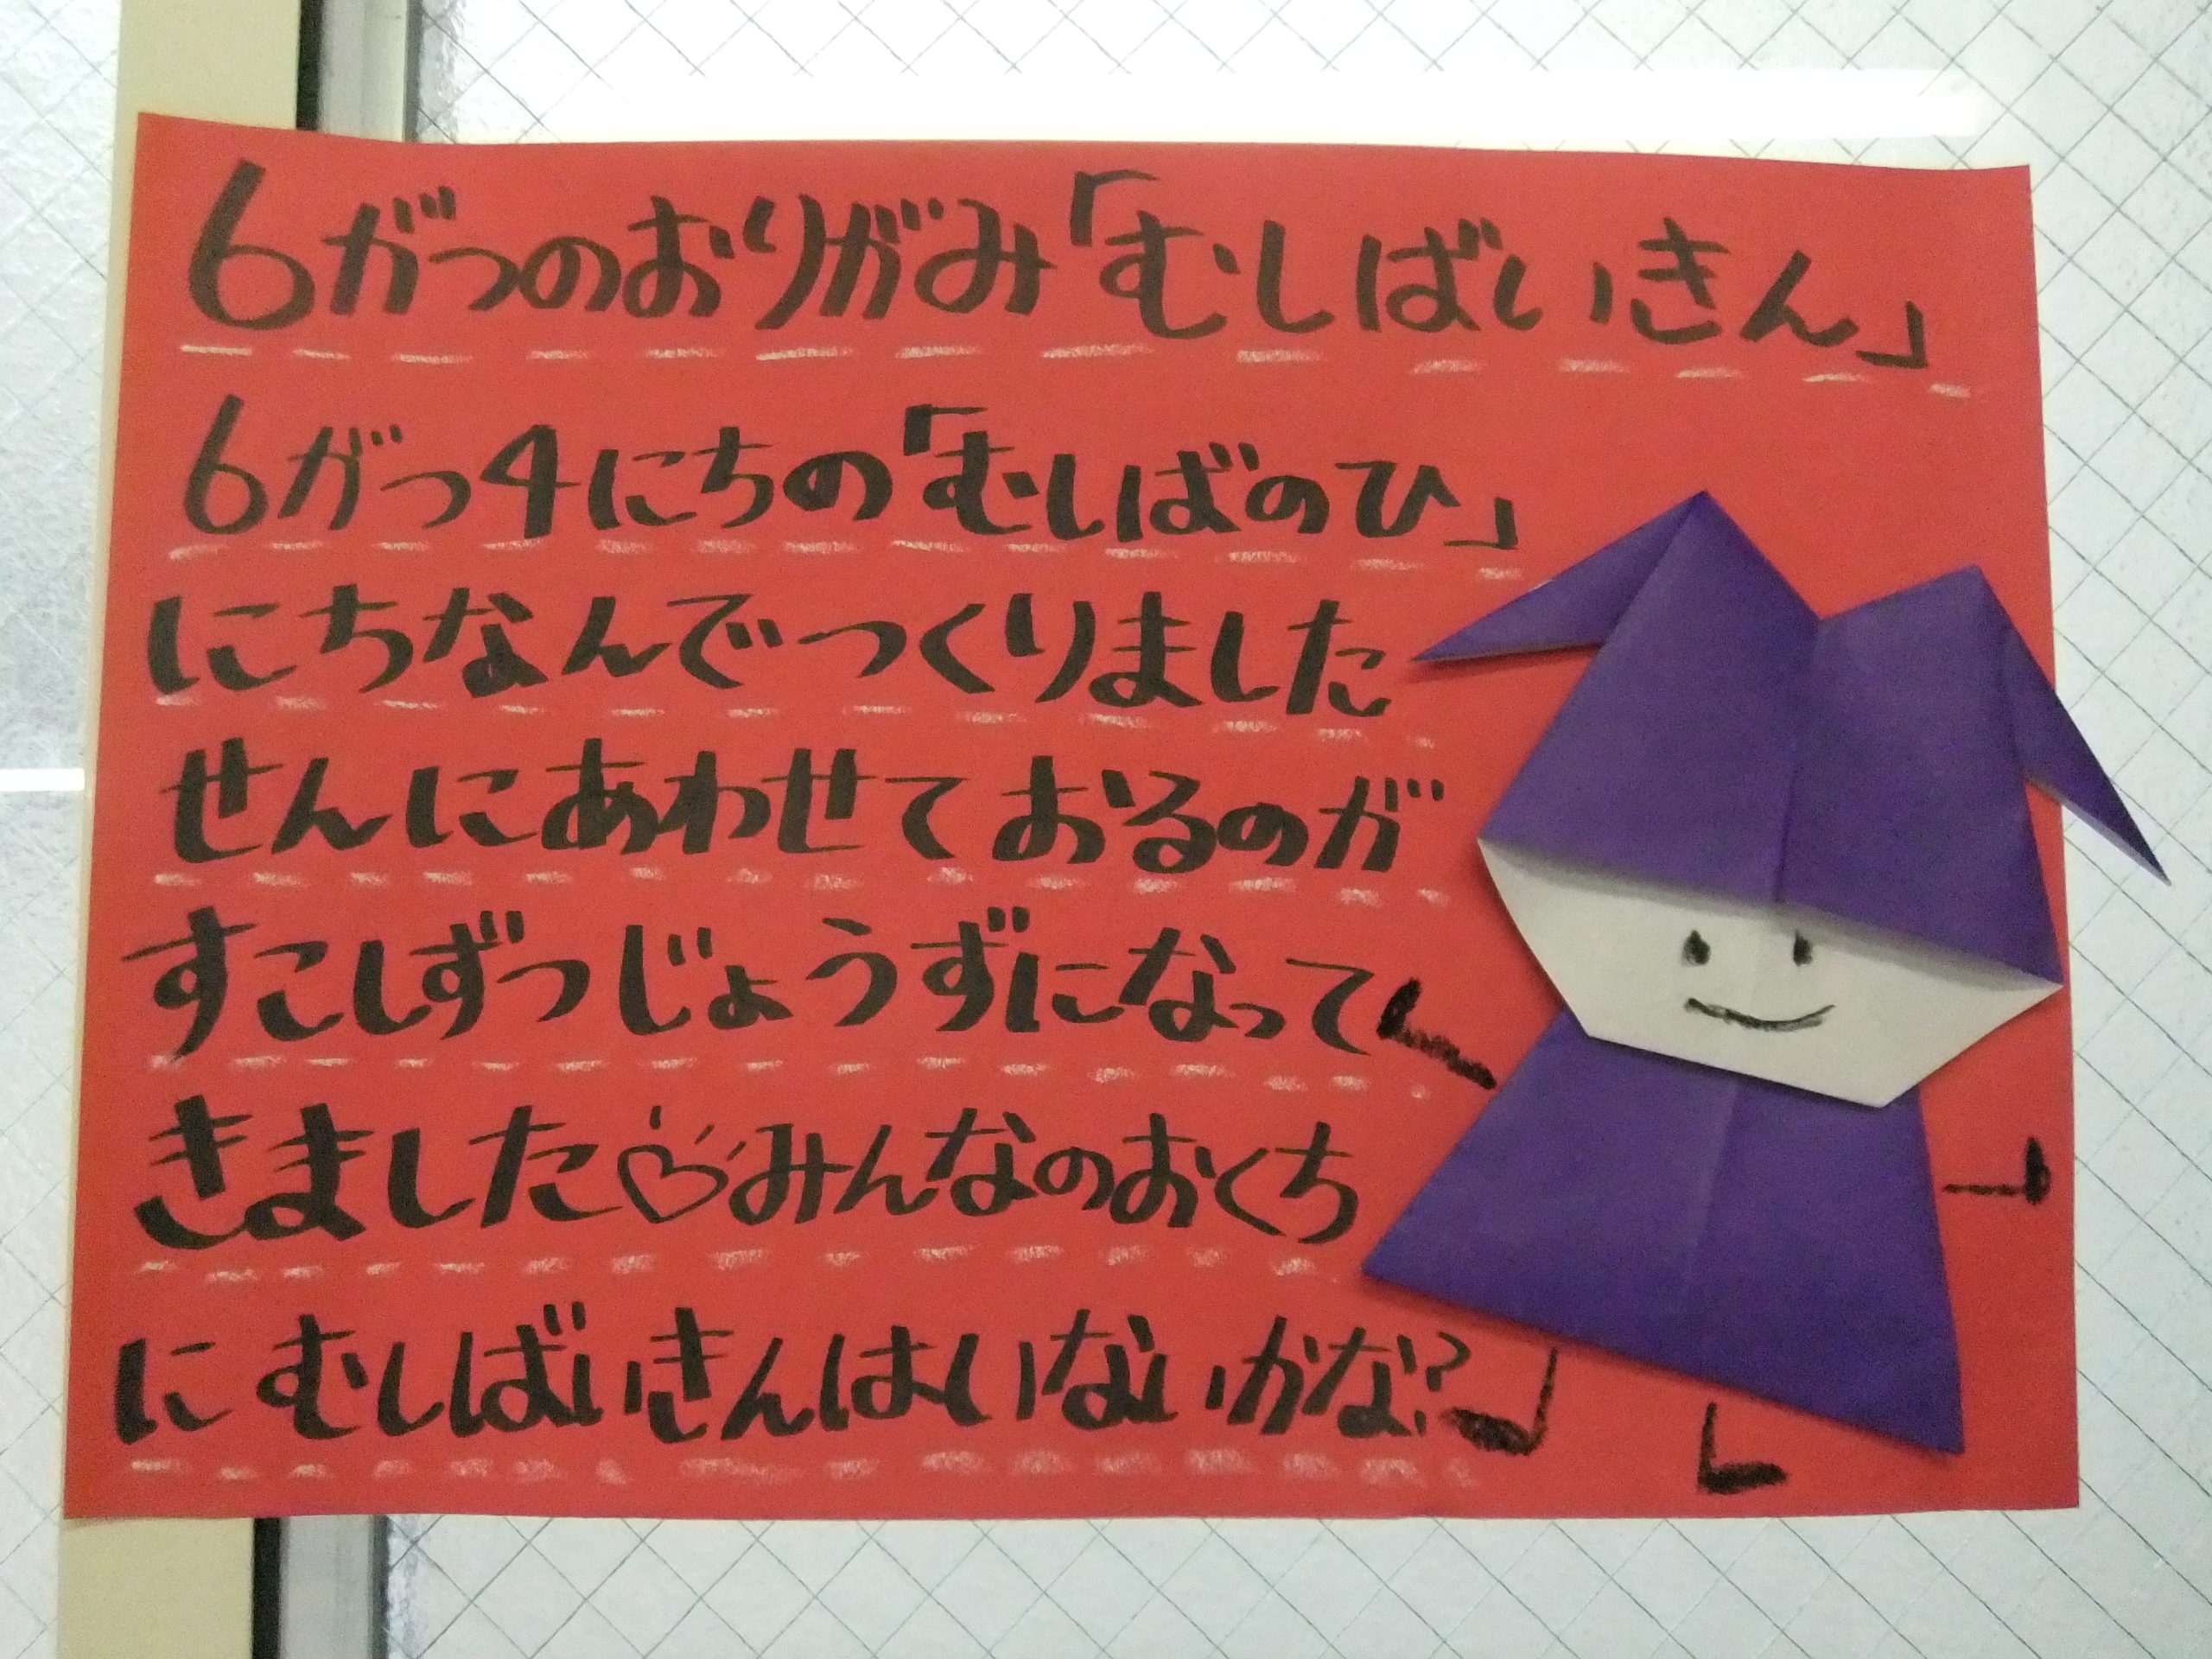 6がつのおりがみ「むしばいきん」
6がつ4にちの「むしばのひ」
にちなんでつくりました
せんにあわせておるのが
すこしずつじょうずになって
きました♡みんなのおくち
にむしばいきんはいないかな?